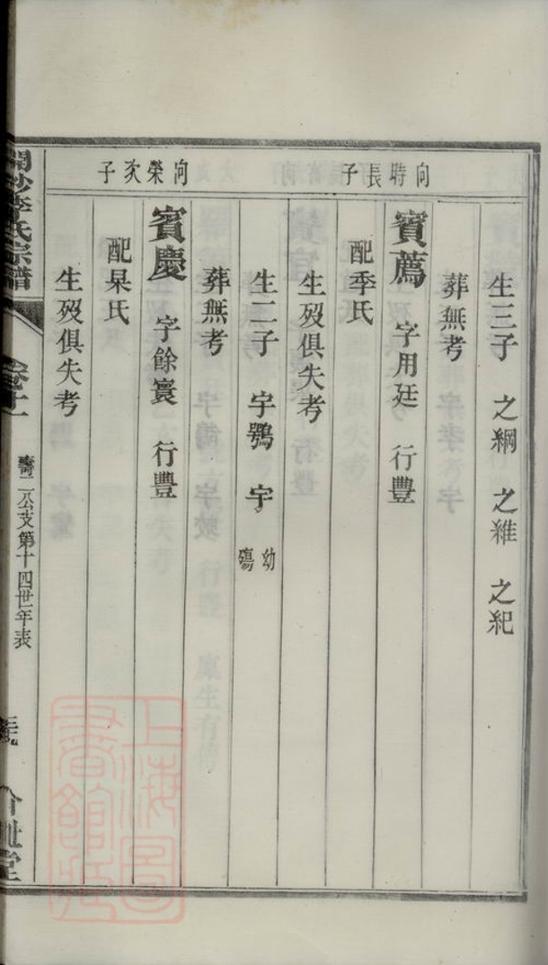 生三子 之綱 之維 之紀
葬無考
向時長子
賓薦 字用廷 行豐
配季氏
生歿俱失考
生二子 字鶚 字 幼殤
葬無考
向榮次子
賓慶 字餘寰 行豐
配杲氏
生歿俱失考
沙李氏宗譜
卷十一
二公支第十四世年表
上海图書館藏